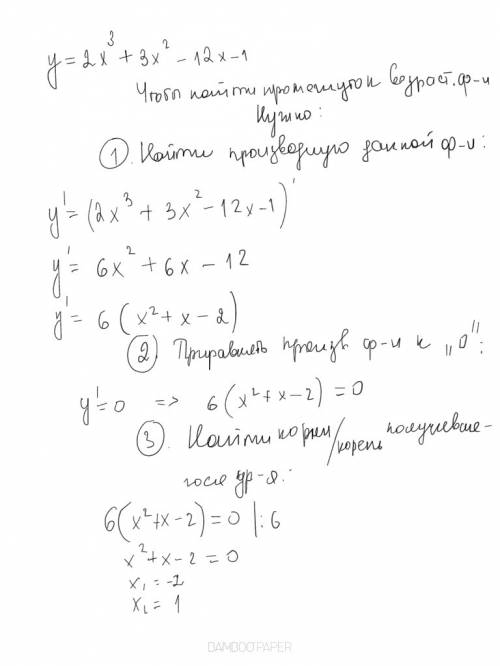 y = 2x³ + 3x² - 12x - 1
Чтоб найти промежуток возраст. ф-и
Нужно:
① . Найти производную данной ф-и:
y' = (2x³ + 3x² - 12x - 1)'
y' = 6x² + 6x - 12
y' = 6(x² + x - 2)
② Приравнять произв. ф-и к „0":
y' = 0 => 6(x² + x - 2) = 0
③ . Найти корни/корень получивше-
гося ур-я:
6(x² + x - 2) = 0 |: 6
x² + x - 2 = 0
x₁ = -2
x₂ = 1
BAMBOOPAPER